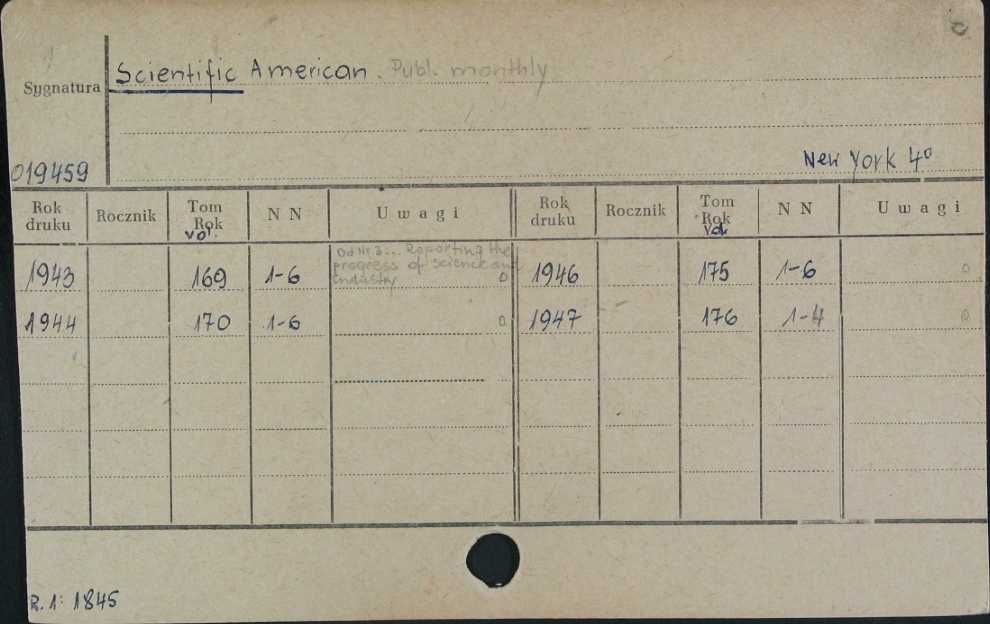 Sygnatura
Scientific American. Publ. monthly
019459
New York 4º
Rok druku Rocznik Tom Rok vol. N N Uwagi Rok druku Rocznik Tom Rok vol N N Uwagi
Od Nr 3... Reporting the
progress of science and
industry
1943 169 1-6 0 1946 175 1-6 0
1944 170 1-6 0 1947 176 1-4 0
R. 1: 1845